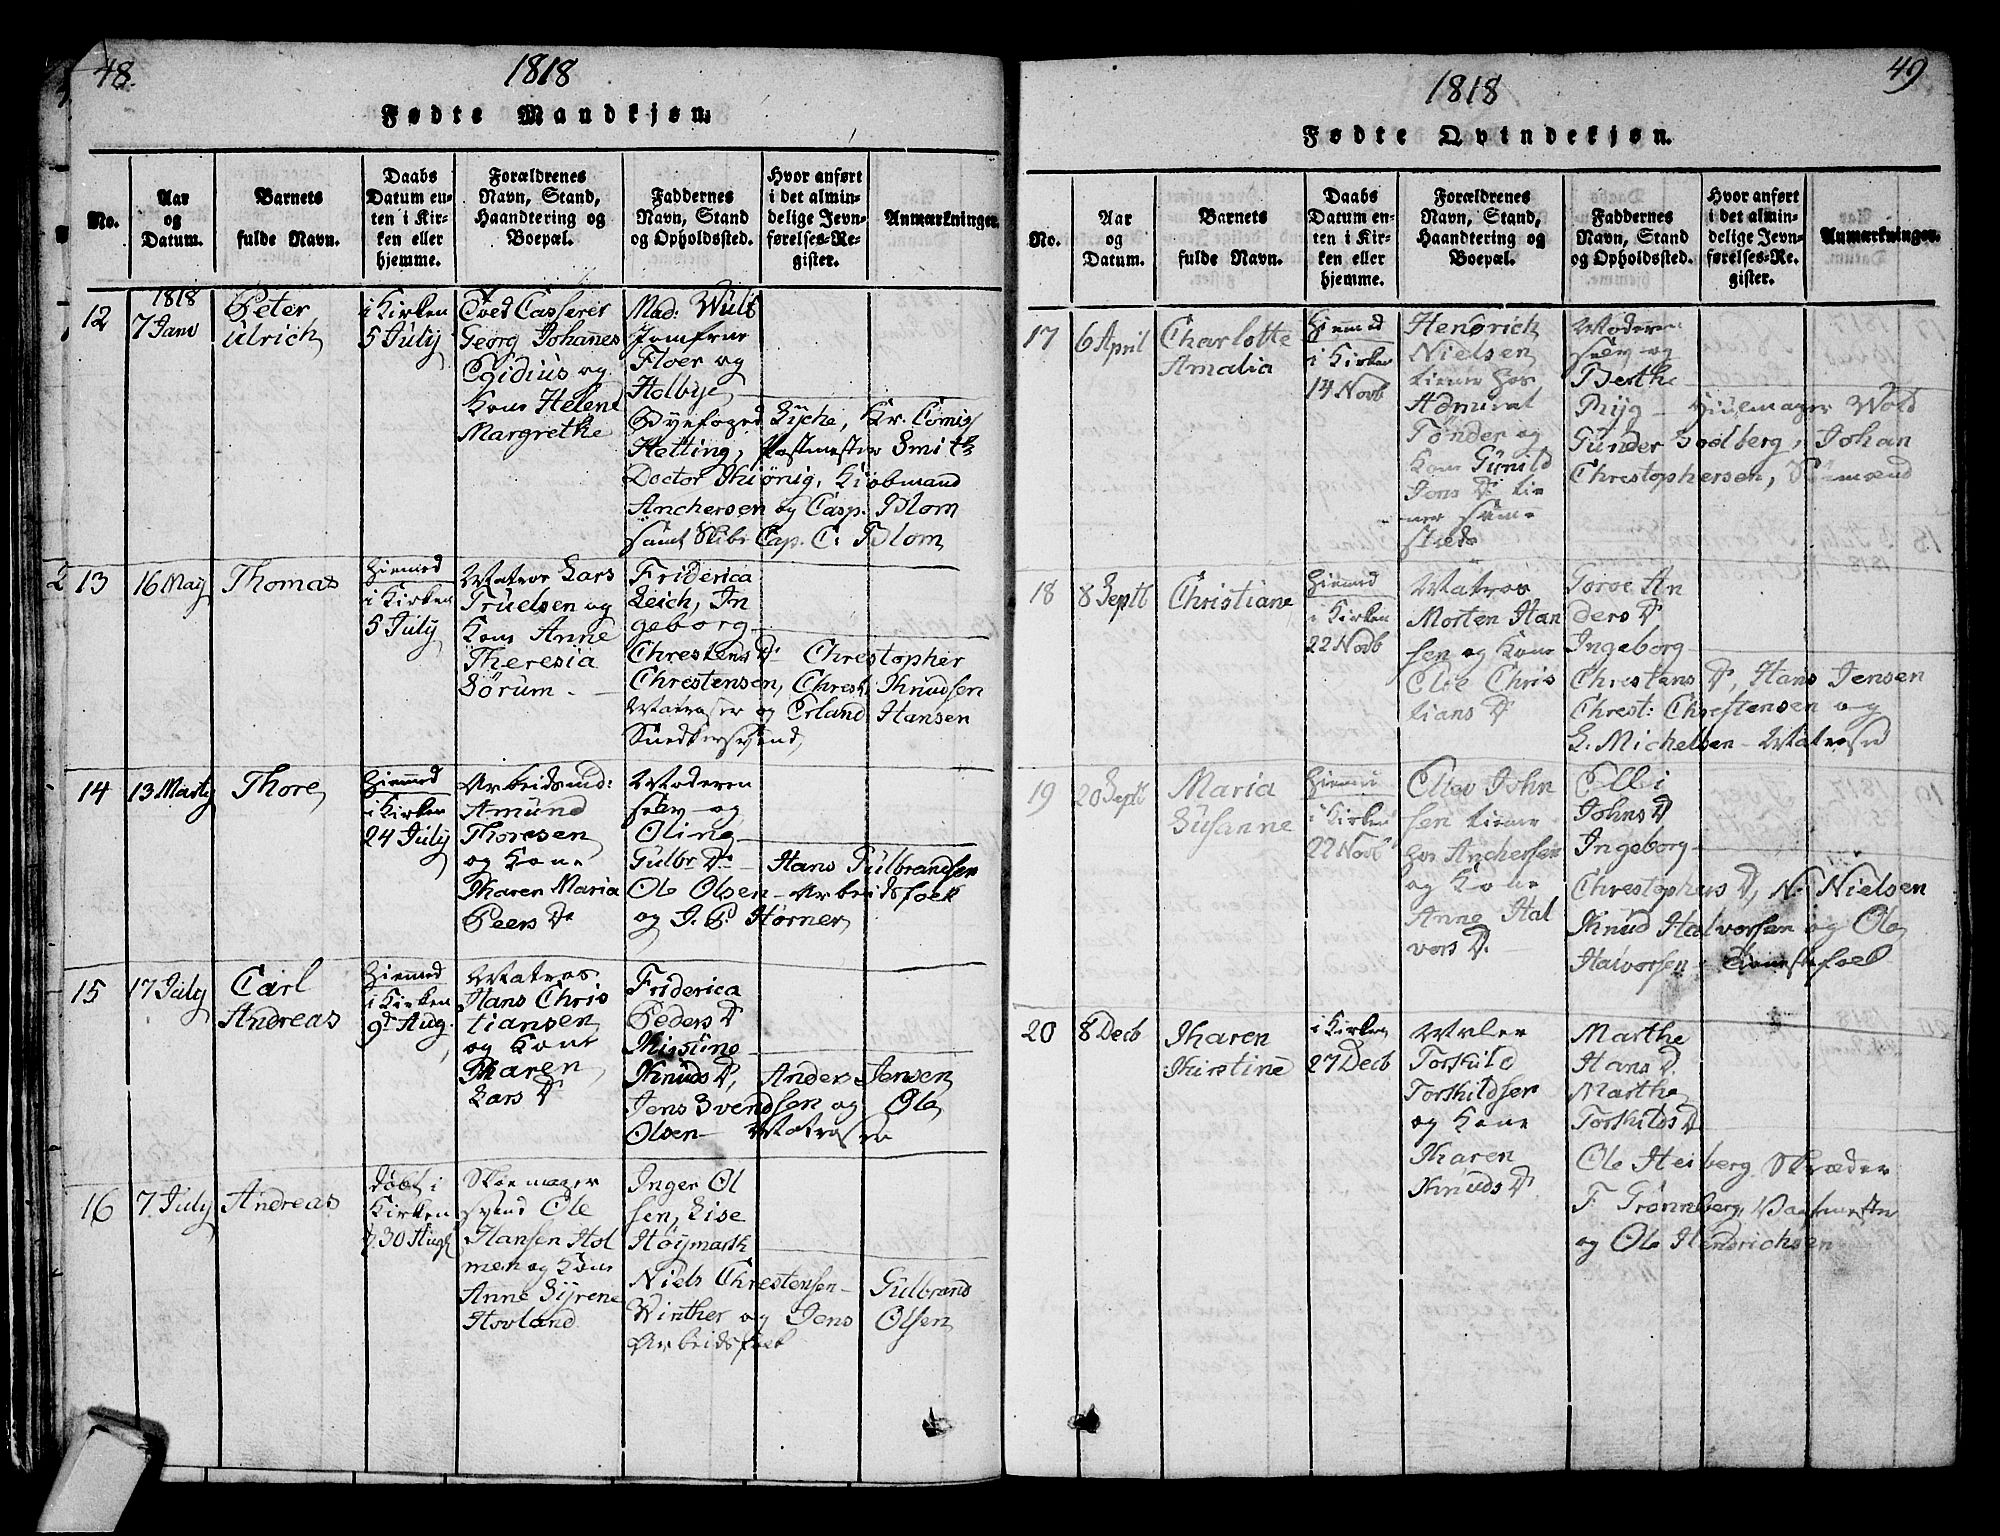 48.
1818
Fødte Mandkjøn.
No.
Aar
og
Datum.
Barnets
fulde Navn.
Daabs
Datum en-
ten i Kir-
ken eller
hjemme.
Forældrenes
Navn, Stand,
Haandtering og
Boepæl.
Faddernes
Navn, Stand
og Opholdssted.
Hvor anført
i det almin-
delige Jevn-
førelses-Re-
gister.
Anmærkninger.
12
1818
7 Janv
Peter
Ulrich
i Kirken
5 July
Casserer
Georg Johannes
Egidius og
Kone Helene
Margrethe
Mad: Wulf
Jomfrue
Floer og
Holbye
Byefoged Lyche, Kr. Comis/
Hetting, Postmester Smith
Doctor Thiönig, Kiöbmand
Anchersen og Casp. Blom
samt Skibs Cap. C. Blom
2
13
16 May
Thomas
Hiemmed
i Kirken
5 July
Matros Lars
Truelsen og
Kone Anne
Theresia
Sørum
Friderica
Leich, In
geborg
Chrestens D. Christopher
Christensen, Christ: Knudsen
Matroser og Erland Hansen
Snedkersvend
14
13 Marty
Thore
Hiemmed
i Kirken
24 July
Arbeidsmd:
Amund
Thoresen
og Kone
Karen Maria
Peers D.
Moderen
selv og
Oling
Gulbr D. Hans Gulbrandsen
Ole Olsen Arbeidsfolk
og J. P. Hörner
15
17 July
Carl
Andreas
Hiemmed
i Kirken
9d Aug.
Matros
Hans Chris
tiansen
og Kone
Karen
Lars D
Friderica
Peders D
Knuds D, Anders Jensen
Jens Svendsen og Ole
Olsen Matroser
16
7 July
Andreas
döbt i
Kirken
d 30 Aug
Skoemager
svend Ole
Hansen Hol
men og Kone
Anne Syrene
Hovland
Inger Ol
sen, Lise
Höymark
Niels Chrestensen Gulbrand
Winther og Jens Olsen
Arbeidsfolk
49
1818
Fødte Qvindekjøn.
No.
Aar
og
Datum.
Barnets
fulde Navn.
Daabs
Datum en-
ten i Kir-
ken eller
hjemme.
Forældrenes
Navn, Stand,
Haandtering og
Boepæl.
Faddernes
Navn, Stand
og Opholdssted.
Hvor anført
i det almin-
delige Jevn-
førelses-Re-
gister.
Anmærkninger.
17
6 April
Charlotte
Amalia
Hiemmed
i Kirken
14 Novb
Hendrich
Nielsen
tiener hos
Admiral
Tönder og
Kone Gunild
Jons D. tie
ner sam-
steds
Moderen
selv og
Berthe
Ryg Hiulmager Wold
Gunder Sodberg, Johan
Chrestophersen, Sömænd
18
8 Septb
Christiane
Hiemmed
i Kirken
22 Novb
Matros
Morten Han
sen og Kone
Eloe Chris
tians D
Toroe An
ders D
Ingeborg
Chrestans D, Hans Jensen
Chrest: Chrestensen og
L. Michelsen Matroser
19
20 Septb
Maria
Susanne
i Kirken
22 Novb
Ellev John
sen tiener
hos Anchersen
og Kone
Anne Hal
vors D.
Elli
Johns D
Ingeborg
Chrestophers D, N. Nielsen
Knud Halvorsen og Ole
Halvorsen tienestefolk
20
8 Decb
Karen
Kirstine
i Kirken
27 Decb
Torskild
Torskildsen
og Kone
Karen
Knuds D
Marthe
Hans D.
Marthe
Torskilds D
Ole Heiberg Skræder
F. Grönneberg, Vagtmester
og Ole Hendrichsen